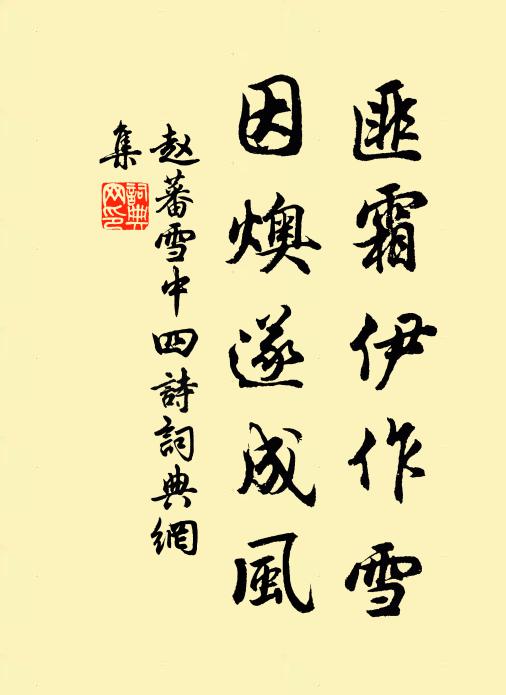 匪霜伊作雪
因燠遂成風
赵蕃雪中四詩詞典網
集
詞典网印